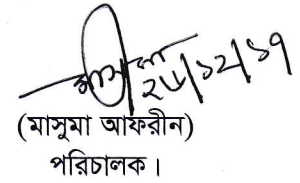 ২৮/১২/১৭
(মাসুমা আফরীন)
পরিচালক।